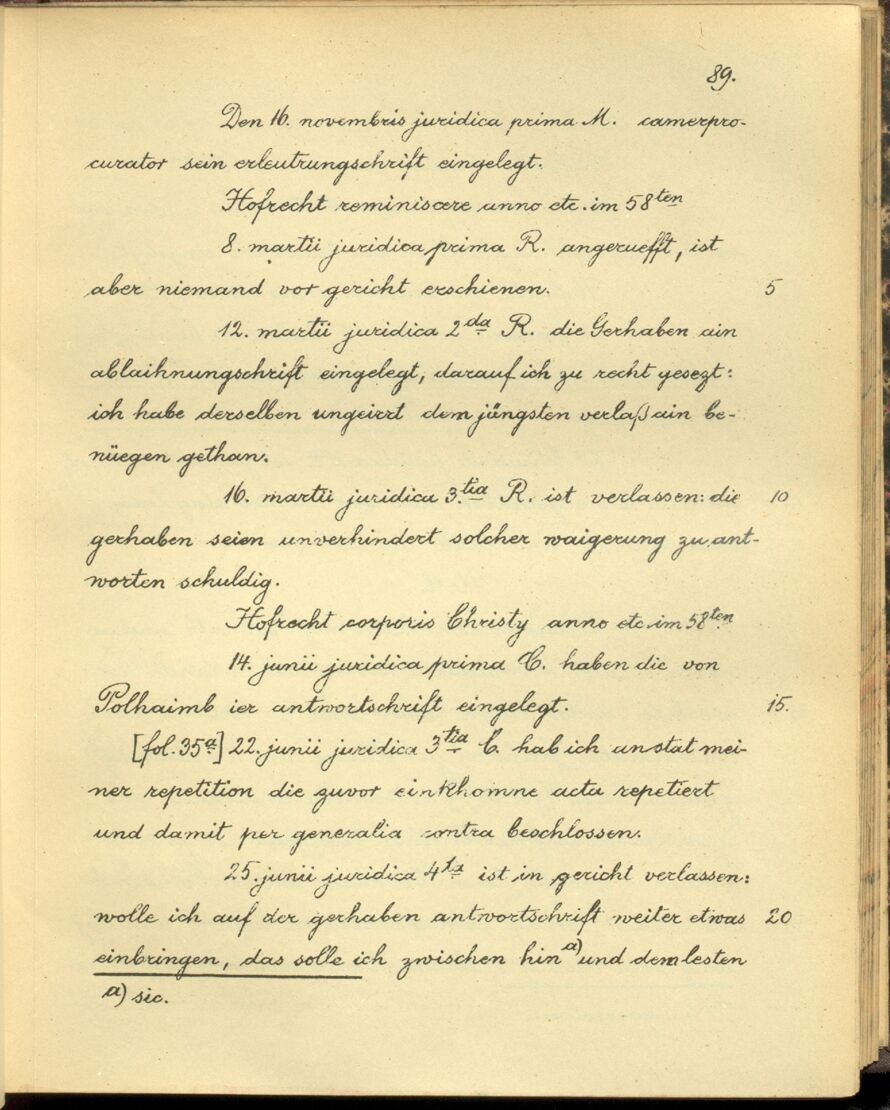 89.
Den 16. novembris juridica prima M. camerpro-
curator sein erleutrungschrift eingelegt.
Hofrecht reminiscere anno etc. im 58ten
8. martii juridica prima R. angerueffft, ist
aber niemand vor gericht erschienen. 5
12. martii juridica 2da R. die Gerhaben ain
ablaihnungschrift eingelegt, darauf ich zu recht gesezt:
ich habe derselben ungeirrt dem jüngsten verlaß ain be-
nüegen gethan.
16. martii juridica 3.tia R. ist verlassen: die 10
gerhaben seien unverhindert solcher waigerung zu ant-
worten schuldig.
Hofrecht corporis Christy anno etc im 58ten
14. junii juridica prima C. haben die von
Polhaimb ier antwortschrift eingelegt. 15.
[fol. 35a] 22. junii juridica 3tia C. hab ich anstat mei-
ner repetition die zuvor einkhomne acta repetiert
und damit per generalia contra beschlossen.
25. junii juridica 4ta ist in gericht verlassen:
wolle ich auf der gerhaben antwortschrift weiter etwas 20
einbringen, das solle ich zwischen hin a) und dem lesten
a) sic.